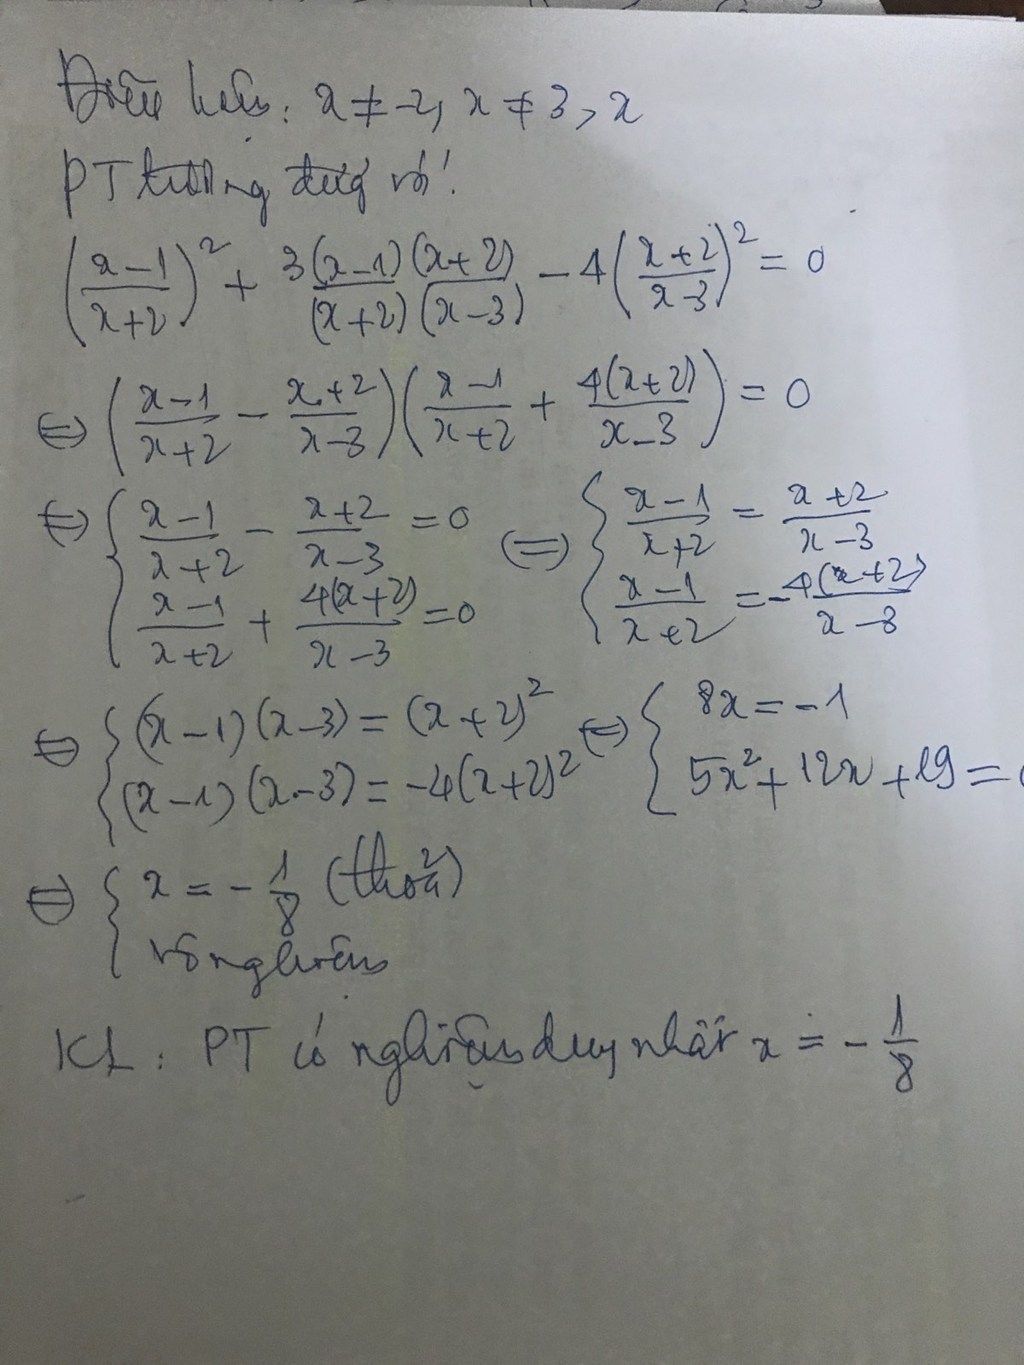 Điều kiện: x ≠ -2, x ≠ 3, x
PT tương đươ với:
(x-1/x+2)² + 3(x-1)(x+2)/(x+2)(x-3) - 4(x+2/x-3)² = 0
⇔ (x-1/x+2 - x+2/x-3)(x-1/x+2 + 4(x+2)/x-3) = 0
⇔ { x-1/x+2 - x+2/x-3 = 0 ⇔ { x-1/x+2 = x+2/x-3
x-1/x+2 + 4(x+2)/x-3 = 0 x-1/x+2 = -4(x+2)/x-3
⇔ { (x-1)(x-3) = (x+2)² ⇔ { 8x = -1
(x-1)(x-3) = -4(x+2)² 5x² + 12x + 19 =
⇔ { x = -1/8 (thoả)
vô nghiệm
KL: PT có nghiệm duy nhất x = -1/8